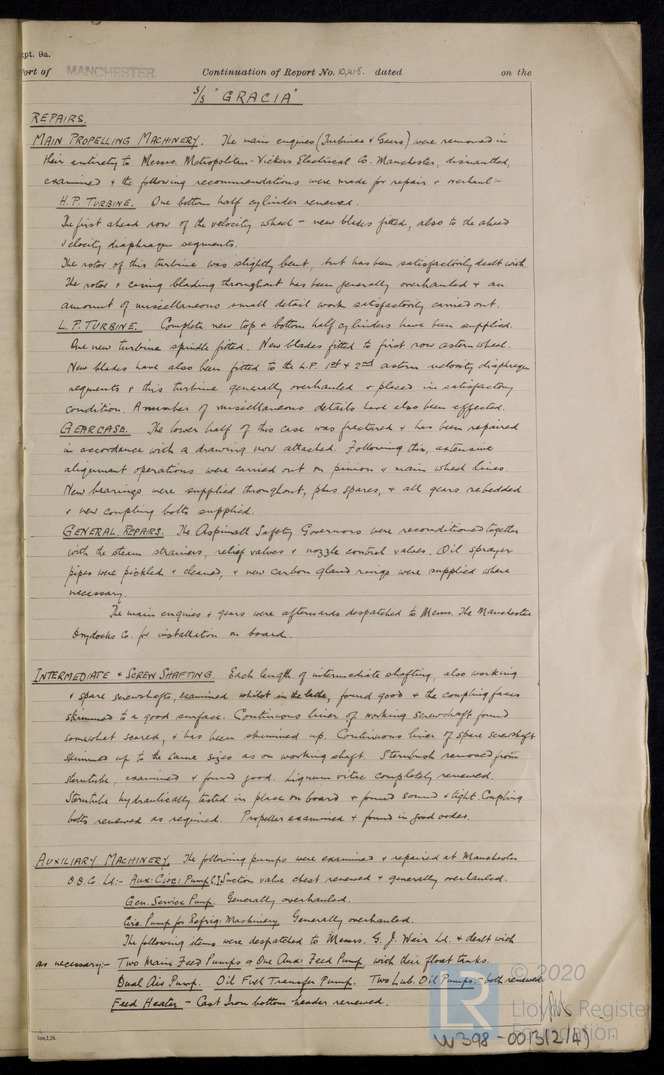 pt. 9a.
ort of MANCHESTER Continuation of Report No. 10,415. dated on the
S/S "GRACIA"
REPAIRS.
MAIN PROPELLING MACHINERY. The main engines (Turbines & Gears) were removed in
their entirety to Messrs. Metropolitan-Vickers Electrical Co. Manchester, dismantled,
examined & the following recommendations were made for repair & overhaul:-
H.P. TURBINE. One bottom half cylinder renewed.
The first ahead row of the velocity wheel - new blades fitted, also to the ahead
velocity diaphragm segments.
The rotor of this turbine was slightly bent, but has been satisfactorily dealt with.
The rotor & casing blading throughout has been generally overhauled & an
amount of miscellaneous small detail work satisfactorily carried out.
L.P. TURBINE. Complete new top & bottom half cylinders have been supplied.
One new turbine spindle fitted. New blades fitted to first row astern wheel.
New blades have also been fitted to the L.P. 1st & 2nd astern velocity diaphragm
segments & this turbine generally overhauled & placed in satisfactory
condition. A number of miscellaneous details have also been effected.
GEARCASE. The lower half of this case was fractured & has been repaired
in accordance with a drawing now attached. Following this, extensive
alignment operations were carried out on pinion & main wheel lines.
New bearings were supplied throughout, plus spares, & all gears rebedded
& new coupling bolts supplied.
GENERAL REPAIRS. The Aspinall Safety Governors were reconditioned together
with the steam strainers, relief valves & nozzle control valves. Oil sprayer
pipes were pickled & cleaned, & new carbon gland rings were supplied where
necessary.
The main engines & gears were afterwards despatched to Messrs. The Manchester
Drydocks Co. for installation on board.
INTERMEDIATE & SCREW SHAFTING. Each length of intermediate shafting, also working
& spare screwshafts, examined whilst in the lathe, found good & the coupling faces
skimmed to a good surface. Continuous liner of working screwshaft found
somewhat scored, & has been skimmed up. Continuous liner of spare screwshaft
skimmed up to the same sizes as on working shaft. Sternbush removed from
sterntube, examined & found good. Lignum vitae completely renewed.
Sterntube hydraulically tested in place on board & found sound & tight. Coupling
bolts renewed as required. Propeller examined & found in good order.
AUXILIARY MACHINERY. The following pumps were examined & repaired at Manchester
D.D. Co. Ld:- Aux: Circ: Pump (1) Suction valve chest renewed & generally overhauled.
Gen. Service Pump, Generally overhauled.
Circ. Pump for Refrig: Machinery, Generally overhauled.
The following items were despatched to Messrs. G. J. Weir Ld. & dealt with
as necessary:- Two Main Feed Pumps & One Aux: Feed Pump with their float tanks.
Dual Air Pump. Oil Fuel Transfer Pump. Two Lub. Oil Pumps - both renewed
Feed Heater - Cast Iron bottom header renewed.
LR © 2020
Lloyd's Register
Foundation
W398-0013(2/4)